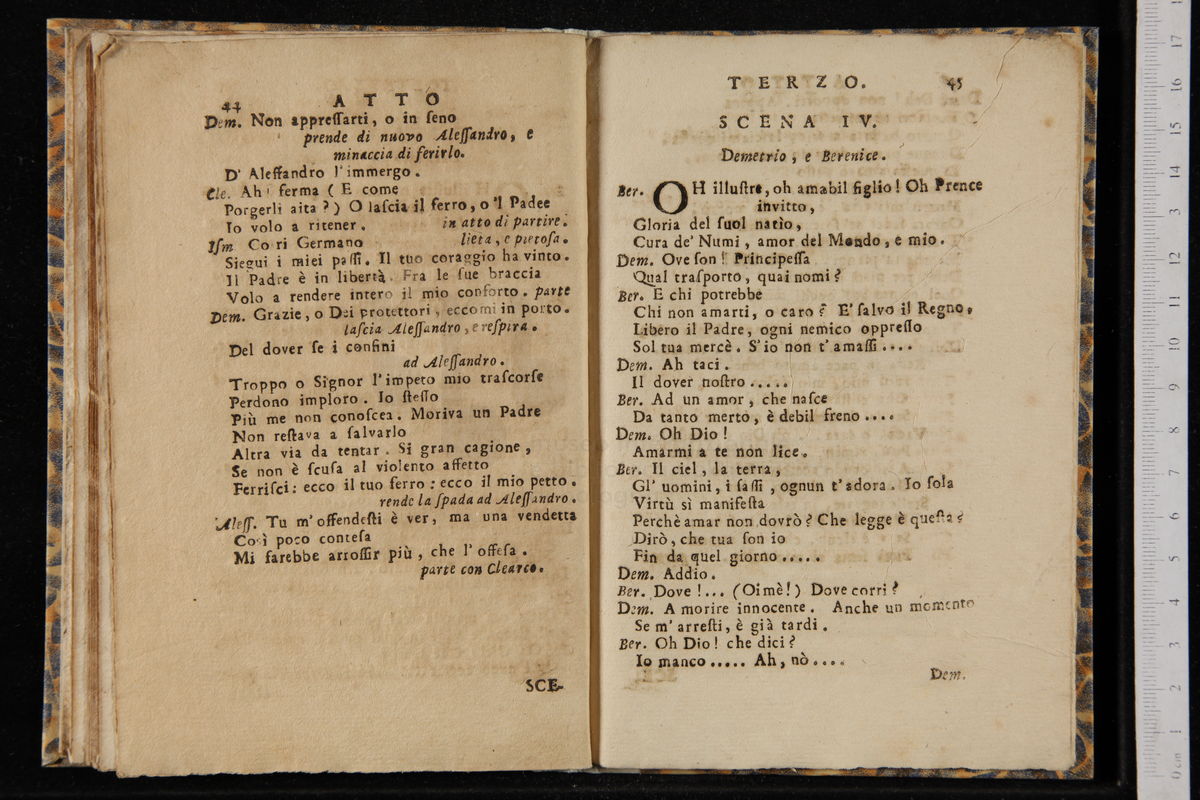 44
A T T O
Dem. Non appreſſarti, o in ſeno
prende di nuovo Aleſſandro, e
minaccia di ferirlo.
D' Aleſſandro l'immergo.
Cle. Ah! ferma ( E come
Porgerli aita? ) O laſcia il ferro, o 'l Padee
Io volo a ritener. in atto di partire.
Iſm Co ri Germano lieta, e pietoſa.
Siegui i miei paſſi. Il tuo coraggio ha vinto.
Il Padre è in libertà. Fra le ſue braccia
Volo a rendere intero il mio conforto. parte
Dem. Grazie, o Dei protettori, eccomi in porto.
laſcia Aleſſandro, e reſpira.
Del dover ſe i confini
ad Aleſſandro.
Troppo o Signor l'impeto mio traſcorſe
Perdono imploro. Io ſteſſo
Più me non conoſcea. Moriva un Padre
Non reſtava a ſalvarlo
Altra via da tentar. Si gran cagione,
Se non è ſcuſa al violento affetto
Ferriſci: ecco il tuo ferro: ecco il mio petto.
rende la ſpada ad Aleſſandro.
Aleſſ. Tu m'offendeſti è ver, ma una vendetta
Così poco conteſa
Mi farebbe arroſſir più, che l'offeſa.
parte con Clearco.
SCE-
T E R Z O. 45
S C E N A I V.
Demetrio, e Berenice.
Ber. OH illuſtre, oh amabil figlio! Oh Prence
invitto,
Gloria del ſuol natìo,
Cura de' Numi, amor del Mondo, e mio.
Dem. Ove ſon! Principeſſa
Qual traſporto, quai nomi?
Ber. E chi potrebbe
Chi non amarti, o caro? E' ſalvo il Regno,
Libero il Padre, ogni nemico oppreſſo
Sol tua mercè. S'io non t'amaſſi....
Dem. Ah taci.
Il dover noſtro.....
Ber. Ad un amor, che naſce
Da tanto merto, è debil freno....
Dem. Oh Dio!
Amarmi a te non lice.
Ber. Il ciel, la terra,
Gl' uomini, i ſaſſi, ognun t'adora. Io ſola
Virtù sì manifeſta
Perchè amar non dovrò? Che legge è queſta?
Dirò, che tua ſon io
Fin da quel giorno.....
Dem. Addio.
Ber. Dove!... (Oimè!) Dove corri?
Dem. A morire innocente. Anche un momento
Se m' arreſti, è già tardi.
Ber. Oh Dio! che dici?
Io manco..... Ah, nò....
Dem.